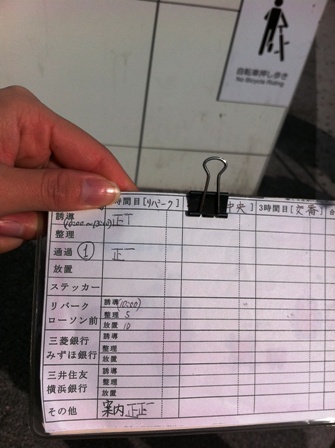 自転車押し歩き
No Bicycle Riding
時間目[リパーク] 中央] 3時間目[交番]
誘導 正丅
整理
通過 ① 正一
放置
ステッカー
リパーク 誘導(10:00)
ローソン前 整理 5
放置 10
三菱銀行 誘導
みずほ銀行 整理
放置
三井住友 誘導
横浜銀行 整理
放置
その他 案内 正正一